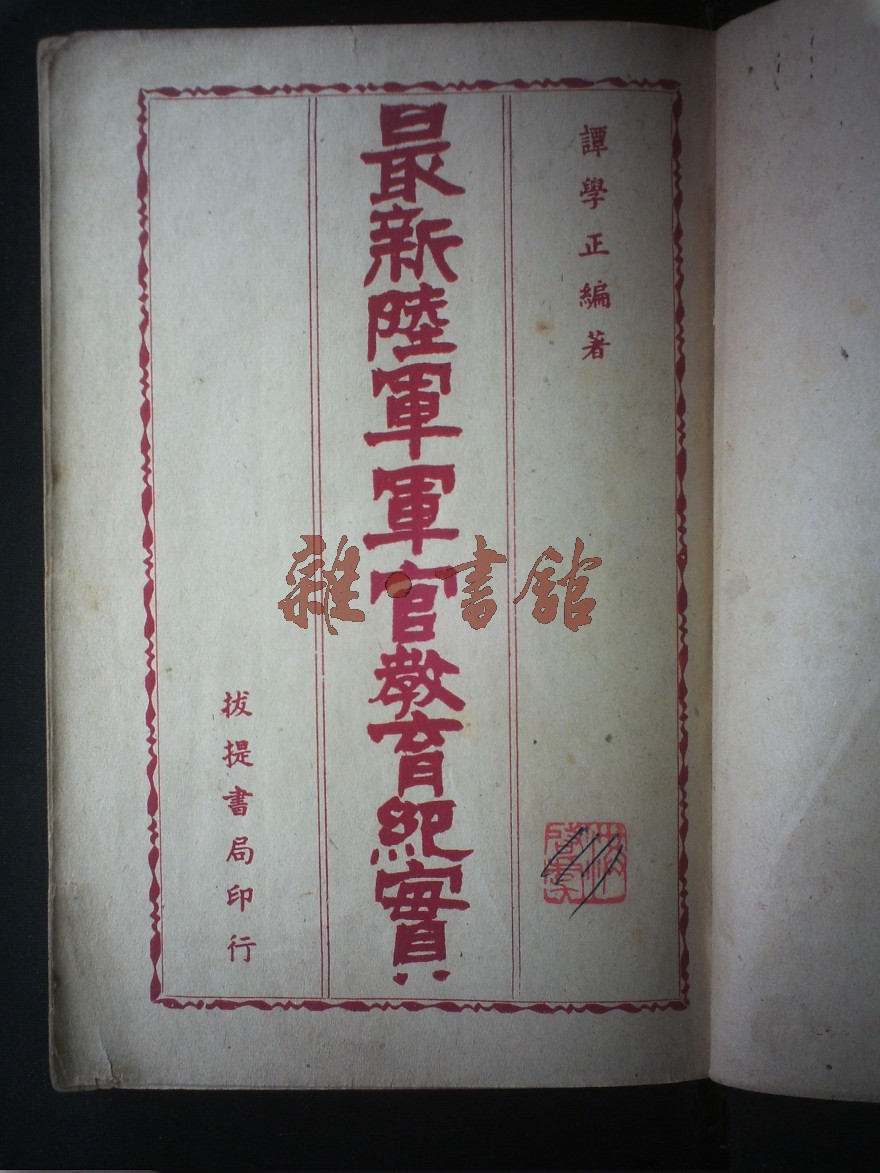 譚學正編著
最新陸軍軍官教育紀實
拔提書局印行
雜·書館